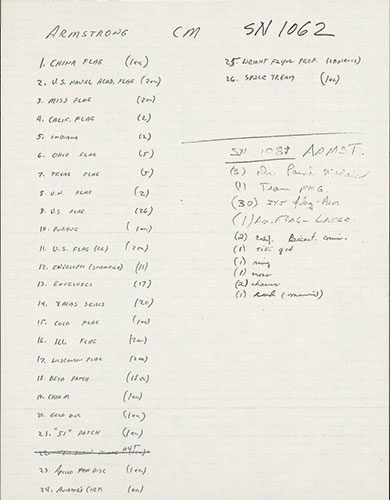 ARMSTRONG CM SN 1062
1. CHINA FLAG (1ea)
2. U.S. NAVAL ACAD. FLAG (2ea)
3. MISS FLAG (2ea)
4. CALIF. FLAG (2)
5. INDIANA (2)
6. OHIO FLAG (5)
7. TEXAS FLAG (5)
8. U.N. FLAG (2)
9. U.S. FLAG (26)
10. PURDUE (1ea)
11. U.S. FLAG (2ea)
12. ENVELOPE (11)
13. ENVELOPES (17)
14. XMAS SEALS (20)
15. COLO FLAG (1ea)
16. ILL FLAG (2ea)
17. WISCONSIN FLAG (2ea)
18. BETA PATCH
19. CHARM (1ea)
20. GOLD (1ea)
21. "51" PATCH (1ea)
22. OUT
23. APOLLO DISC (1ea)
24. (1ea)
25 WRIGHT FLYER PROP.
26. SPACE (1ea)
SN 1087 ARMST.
(3)
(1) Team PKG.
(30) flag
(1) FLAG - LARGE
(2) Calif. Bicent.
(1) TIKI god
(1) ring
(1)
(2) chains
(1)